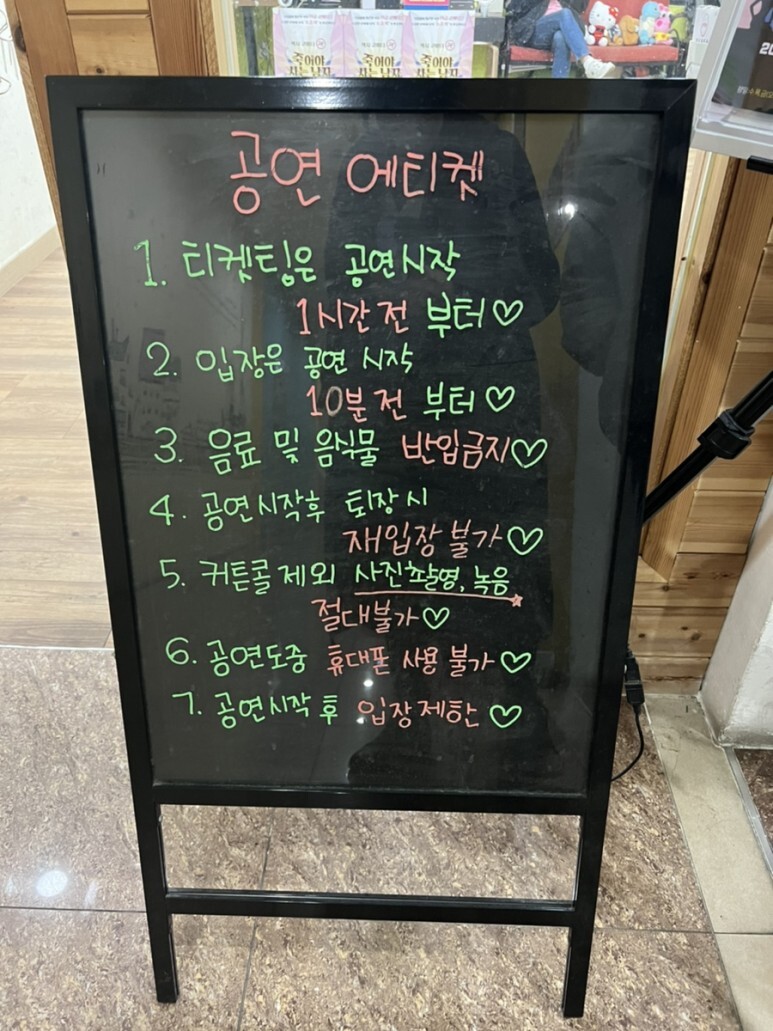 죽어야
사는남자
죽어야
사는남자
죽어야
사는남자
공연 에티켓
1. 티켓팅은 공연시작
1시간 전 부터♡
2. 입장은 공연 시작
10분 전 부터♡
3. 음료 및 음식물 반입금지♡
4. 공연시작후 퇴장 시
재입장 불가♡
5. 커튼콜 제외 사진촬영, 녹음
절대불가♡
6. 공연도중 휴대폰 사용 불가♡
7. 공연시작 후 입장제한♡